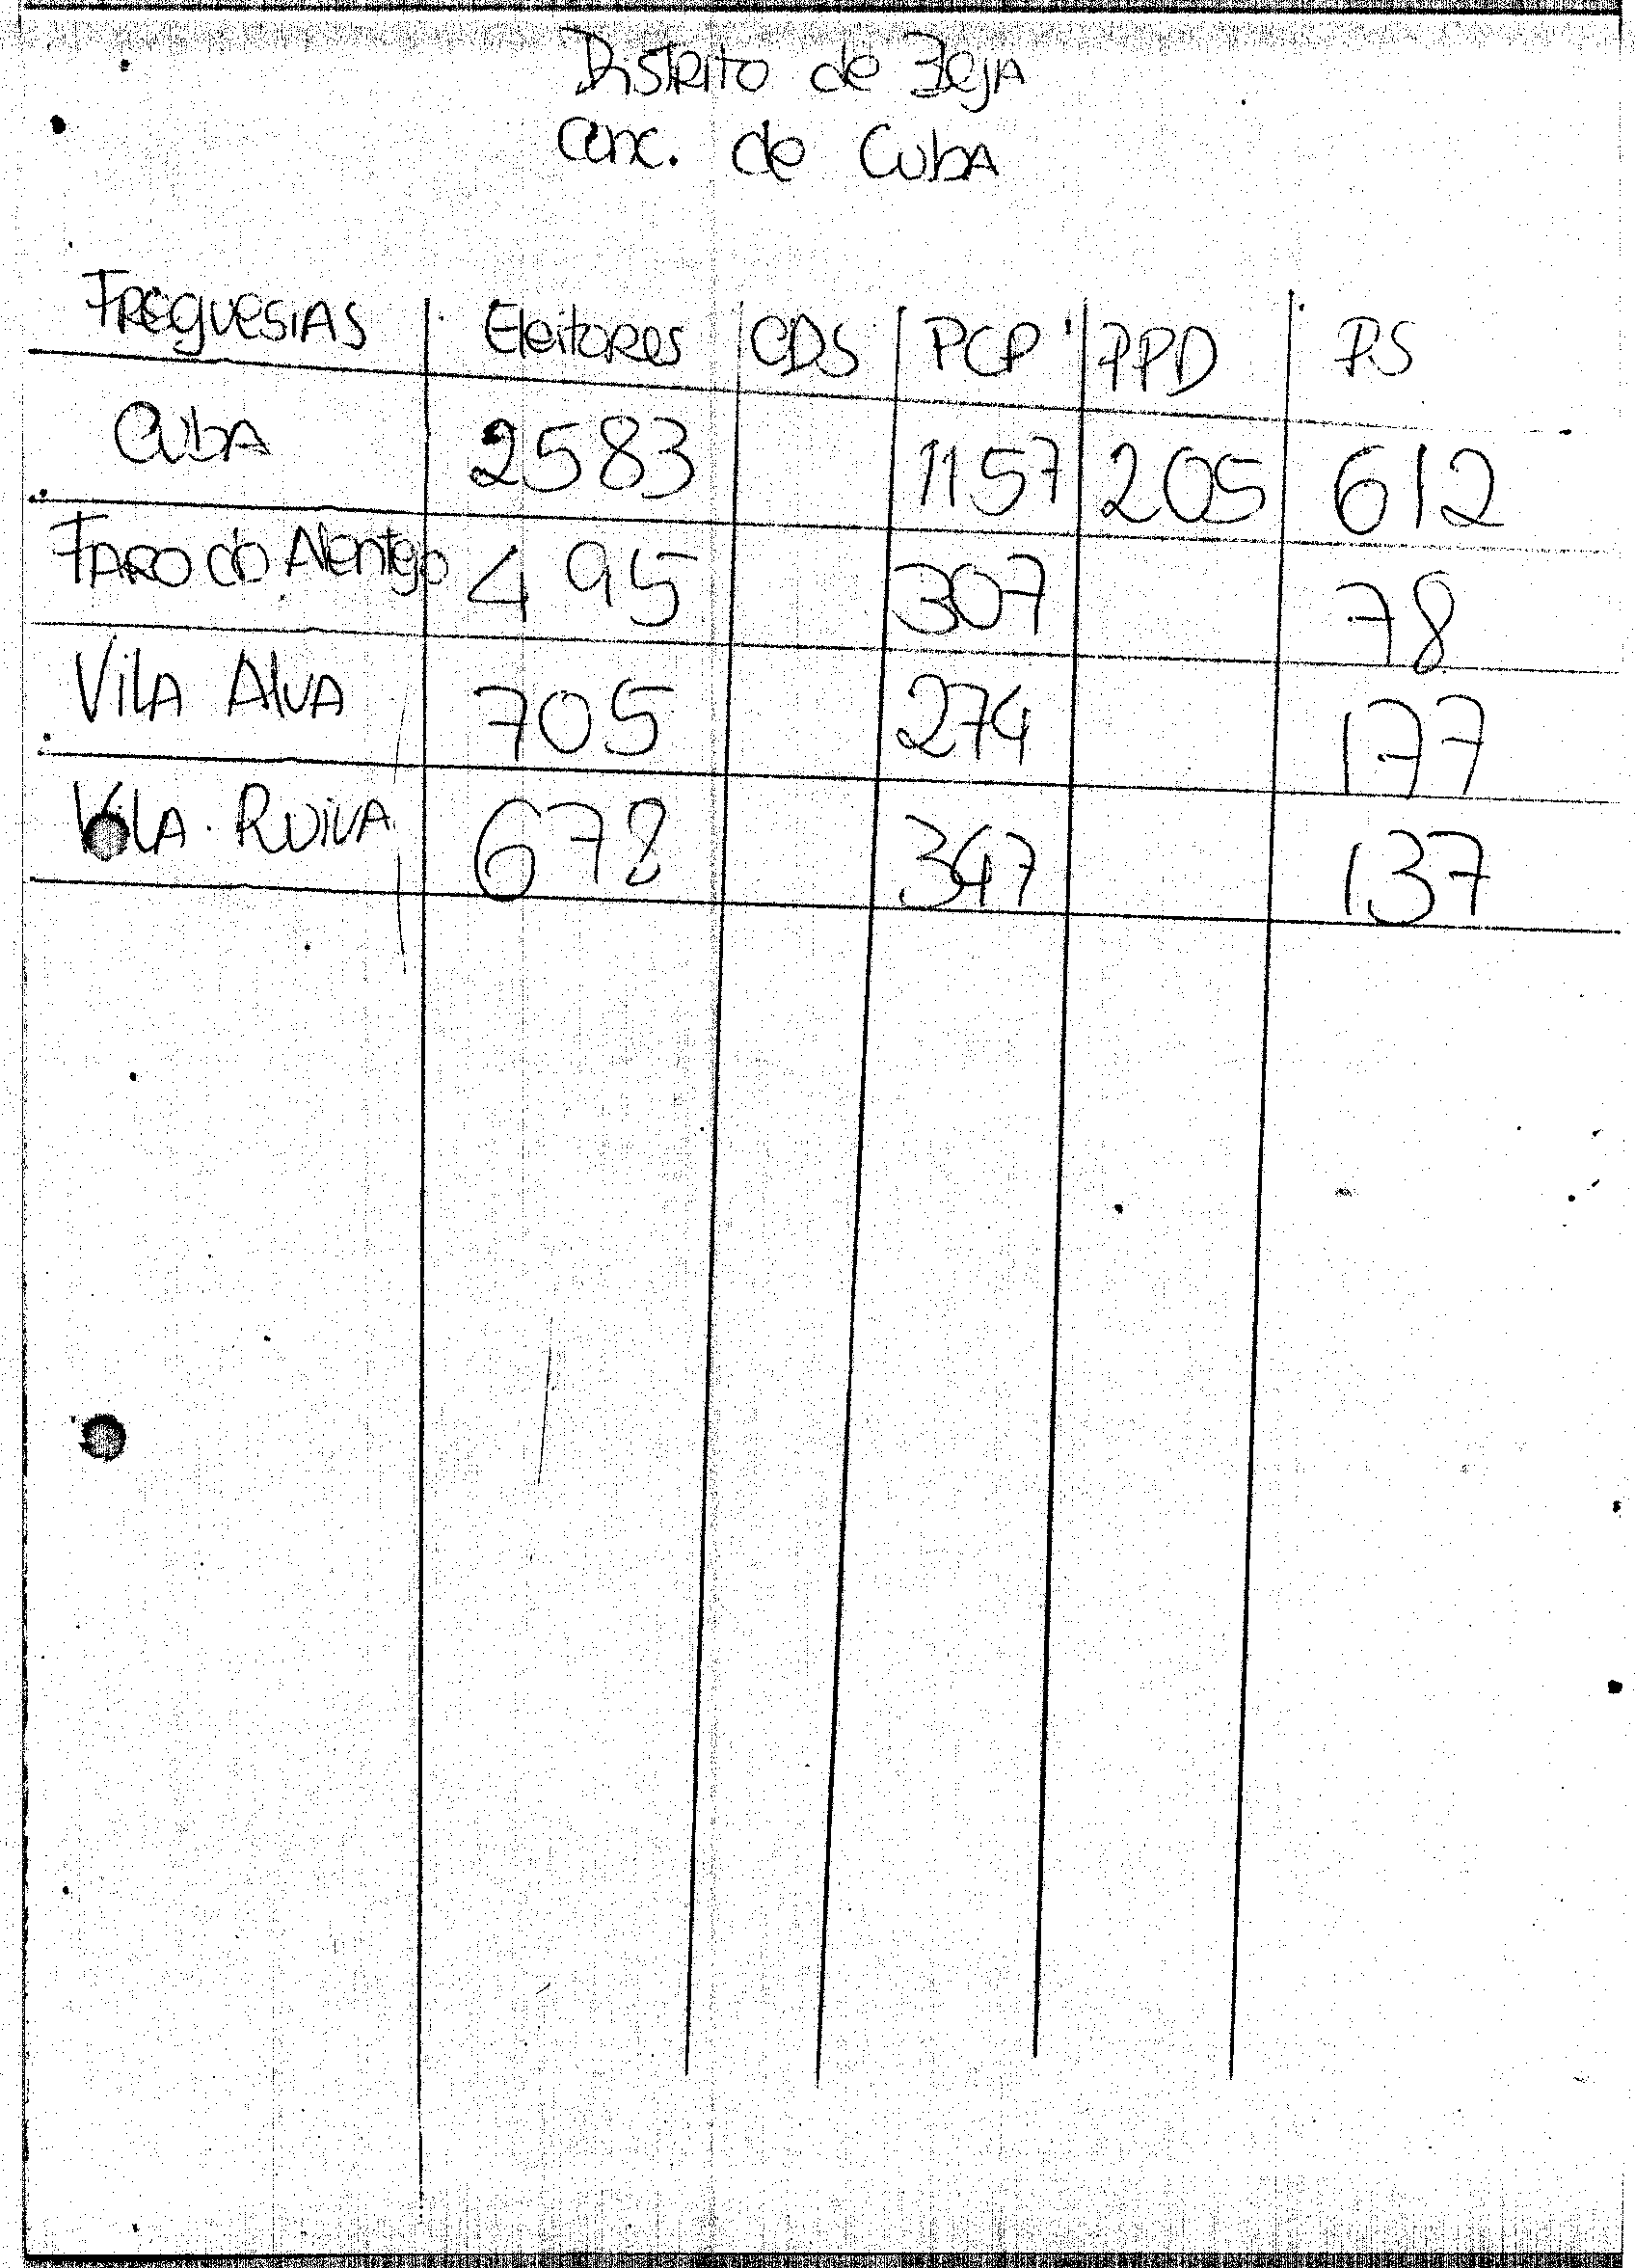 Distrito de Beja
Conc. de Cuba
Freguesias Eleitores CDS PCP PPD PS
Cuba 2583 1157 205 612
Faro do Alentejo 495 307 78
Vila Alva 705 274 177
Vila Ruiva 678 347 137